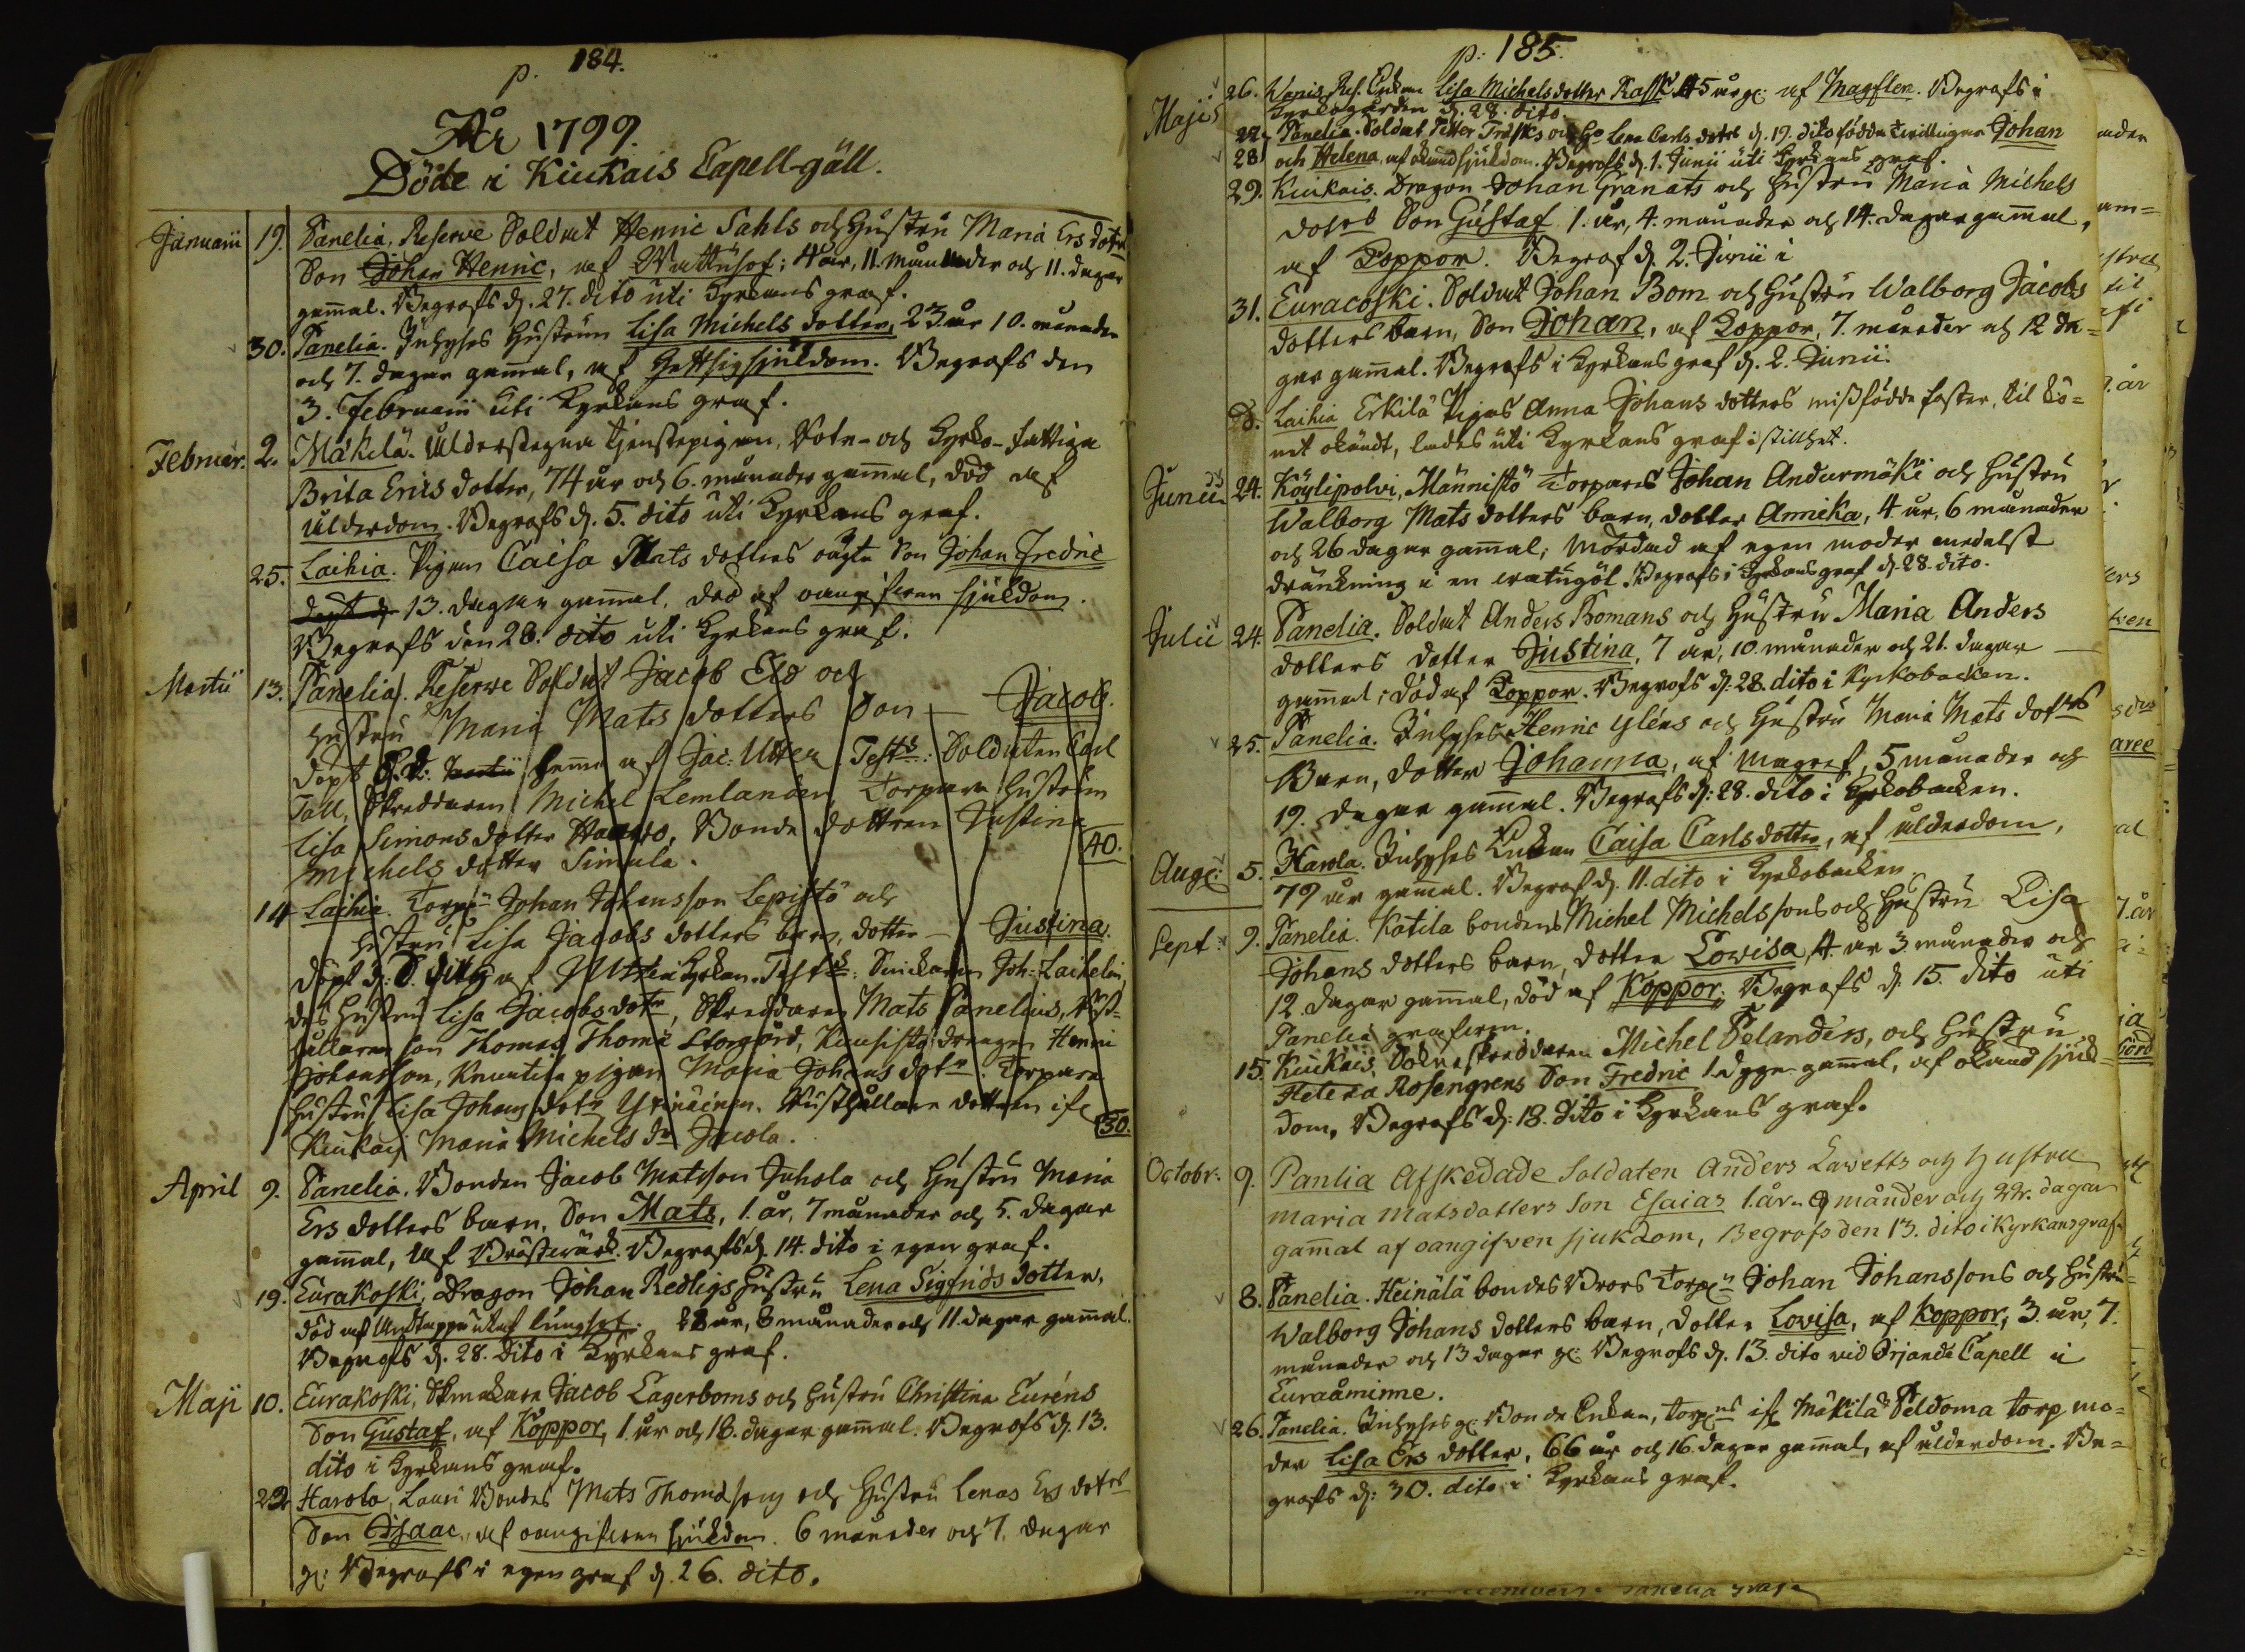 p. 184.
År 1799.
Döde i Kiukais Capell-gäll.
Januarii 19. Panelia, Reserve Soldat Henric Sahls och Hustru Maria Ers dotrs
Son Johan Henric, af Wattusot: 4 år, 11. månader och 11. dagar
gammal. Begrofs d. 27. dito uti Kyrkans graf.
30. Panelia. Inhyses Hustrun Lisa Michels dotter, 23 år 10. månader
och 7. dagar gammal, af Hettsigsjukdom. Begrofs den
3. Februarii uti Kyrkans graf.
Februar. 2. Mäkilä. Ålderstegna tjenstepigan, Sokn- och Kyrko-fattiga
Brita Erics dotter, 74 år och 6. månader gammal, död af
ålderdom. Begrofs d. 5. dito uti Kyrkans graf.
25. Laihia. Pigan Caisa Mats dotters oägta Son Johan Fredric
döpt d. 13. dagar gammal, död af oangifven sjukdom.
Begrofs den 28. dito uti Kyrkans graf.
Martii 13. Panelia. Reserve Soldat Jacob Elo och
hustru Maria Mats dotters Son — Jacob.
döpt d. Martii hemma af Jac: Utter. Tests: Soldaten Carl
Tall, Skreddaren Michel Lemlander Torpare Hustrun
Lisa Simons dotter Haario, Bonde dottren Justina
Michels dotter Simula. 40.
14 Laihia. Torpn Johan Johansson Lepistö och
hustru Lisa Jacobs dotters barn, dotter — Justina.
döpt d. 8. dito af J Utter i Kyrkan. Tests: Snickaren Joh: Laihelin,
des hustru Lisa Jacobsdotr, Skreddaren Mats Panelius, Rust-
hållaren son Thomas Thomæ Storgård, Kausista drengen Henric
Johansson, Knuutila pigan Maria Johans dotr. Torpare
hustru Lisa Johans dotr Yrinäinen. Rusthållare dottren ifr
Kiukais Maria Michels dr Jacola. 30.
April 9. Panelia. Bonden Jacob Matsson Juhola och Hustru Maria
Ers dotters barn, Son Mats, 1. år, 7 månader och 5. dagar
gammal, af Bröstwärk. Begrofs d. 14. dito i egen graf.
19. Eurakoski, Dragon Johan Redligs Hustru Lena Sigfrids dotter,
död af Andtäppa utaf lungsot. 28 år, 8 månader och 11. dagar gammal.
Begrofs d. 28. dito i Kyrkans graf.
Maji 10. Eurakoski, Skomakare Jacob Lagerboms och Hustru Christina Euréns
Son Gustaf, af Koppor, 1. år och 18. dagar gammal. Begrofs d. 13.
dito i Kyrkans graf.
22 Harola, Lauri Bondes Mats Thomassons och Hustru Lenas Ers dotrs
Son Isaac, af oangifven sjukdom. 6 månader och 7. dagar
gl: Begrofs i egen graf d. 26. dito.
p: 185.
Maji 26. Res. Enkan Lisa Michelsdotter Rask 45 år gl: af Magflen. Begrofs i
Kyrkogården d. 28. dito.
22. Panelia. Soldat Petter Träsks och Ho Lena Carls dotrs d. 19. dito födda twillingar Johan
28 och Helena, af okänd sjukdom. Begrofs d. 1. Junii uti Kyrkans graf.
29. Kiukais. Dragon Johan Granats och Hustru Maria Michels
dotrs Son Gustaf 1. år, 4. månader och 14. dagar gammal,
af Koppor. Begrof d. 2. Junii i
31. Euracoski. Soldat Johan Bom och Hustru Walborg Jacobs
dotters barn, Son Johan, af Koppor, 7. månader och 12 da-
gar gammal. Begrofs i Kyrkans graf d. 2. Junii.
D. Laihia Erkilä Pigas Anna Johans dotters missfödde foster, til kö-
net okändt, lades uti Kyrkans graf i stillhet.
Junii 24. Köylipolvi, Männistö Torpares Johan Andurmäki och Hustru
Walborg Mats dotters barn, dotter Annika, 4. år, 6 månader
och 26 dagar gammal; mördad af egen moder medelst
dränkning i en watugöl. Begrofs i Kyrkans graf d. 28. dito.
Julii 24. Panelia. Soldat Anders Bomans och Hustru Maria Anders
dotters dotter Justina, 7 år, 10 månader och 21. dagar —
gammal; död af Koppor. Begrofs d: 28. dito i Kyrkobacken.
25. Panelia. Inhyses Henric Yléns och Hustru Maria Mats dotrs
Barn, dotter Johanna, af Magref, 5 månader och
19. dagar gammal. Begrofs d: 28. dito i Kyrkobacken.
Aug: 5. Harola. Inhyses Enkan Caisa Carlsdotter, af ålderdom,
79 år gammal. Begrof d. 11. dito i Kyrkobacken.
Sept: 9. Panelia. Katila bondens Michel Michelssons och Hustru Lisa
Johans dotters barn, dotter Lowisa, 4. år 3. månader och
12. dagar gammal, död af Koppor; Begrofs d. 15. dito uti
Panelia grafven.
15. Kiukais, Sokneskreddaren Michel Selanders, och Hustru
Helena Rosengrens Son Fredric 1. dygn gammal, af okänd sjuk-
dom, Begrofs d: 18. dito i Kyrkans graf.
Octobr: 9. Panlia Afskedade Soldaten Anders Lavetts och Hustru
Maria Matsdotters Son Esaias 1. år. 9 månder och 22. dagar
gammal af oangifven sjukdom, Begrofs den 13. dito i Kyrkans graf.
8. Panelia. Heinälä bondes Brors Torpn Johan Johanssons och Hustru
Walborg Johans dotters barn, dotter Lovisa, af Koppor, 3. år, 7.
månader och 13 dagar gl: Begrofs d. 13. dito vid Irjanda Capell i
Euraåminne.
26. Panelia. Inhyses gl: Bonde Enkan, Torpns ifr Mäkilä Peldoma torp mo-
der Lisa Ers dotter, 66 år och 16. dagar gammal, af ålderdom. Be-
grofs d: 30. dito i Kyrkans graf.